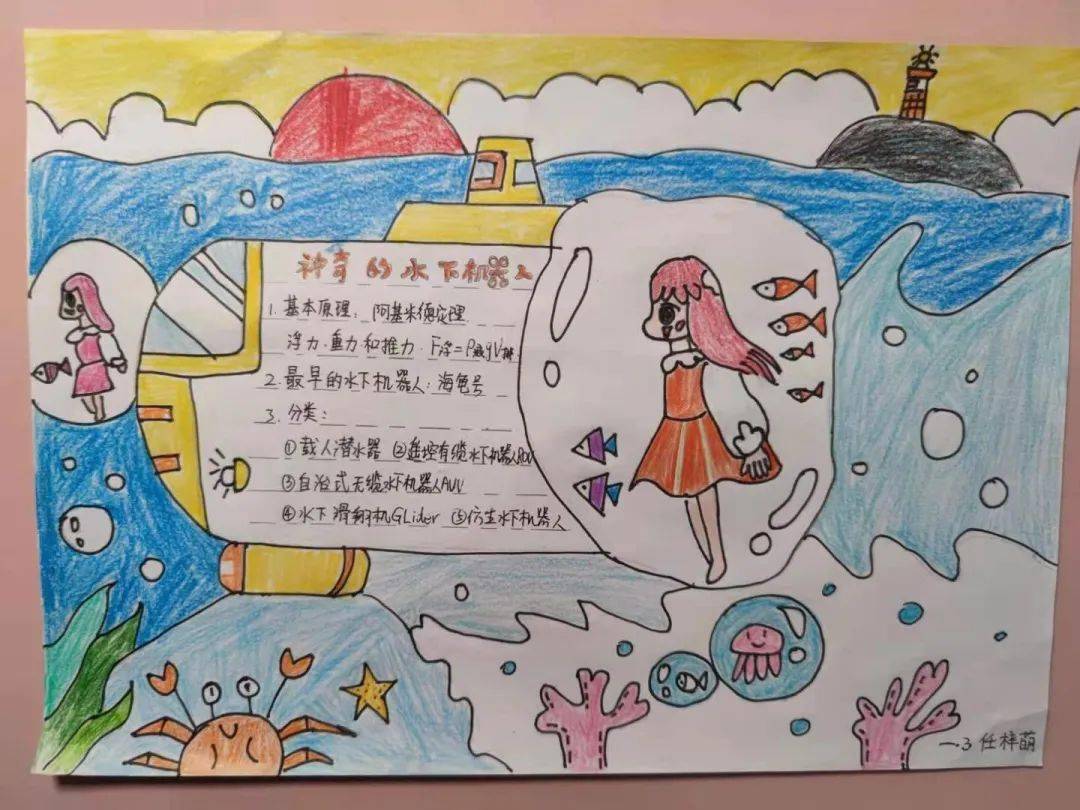 神奇的水下机器人
1. 基本原理: 阿基米德定理
浮力·重力和推力·F浮=ρ液gV排
2. 最早的水下机器人: 海龟号
3. 分类:
①载人潜水器 ②遥控有缆水下机器人ROV
③自治式无缆水下机器人AUV
④水下滑翔机GLider ⑤仿生水下机器人
一.3 任梓萌